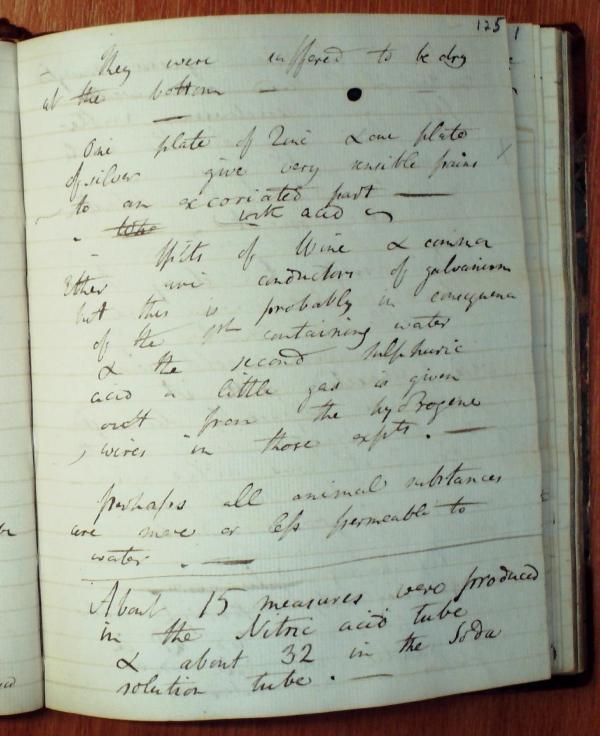 125
They were suffered to be dry
at the bottom —
One plate of Zinc & one plate
of silver give very sensible pains
to an excoriated part —
with acid
Spits of Wine & common
Ether are conductors of galvanism
but this is probably in consequence
of the 1st containing water
& the second sulphuric
acid a little gas is given
out from the hydrogene
wires in those expts. —
perhaps all animal substances
are more or less permeable to
water. —
About 15 measures were produced
in the Nitric acid tube
& about 32 in the Soda
solution tube. —